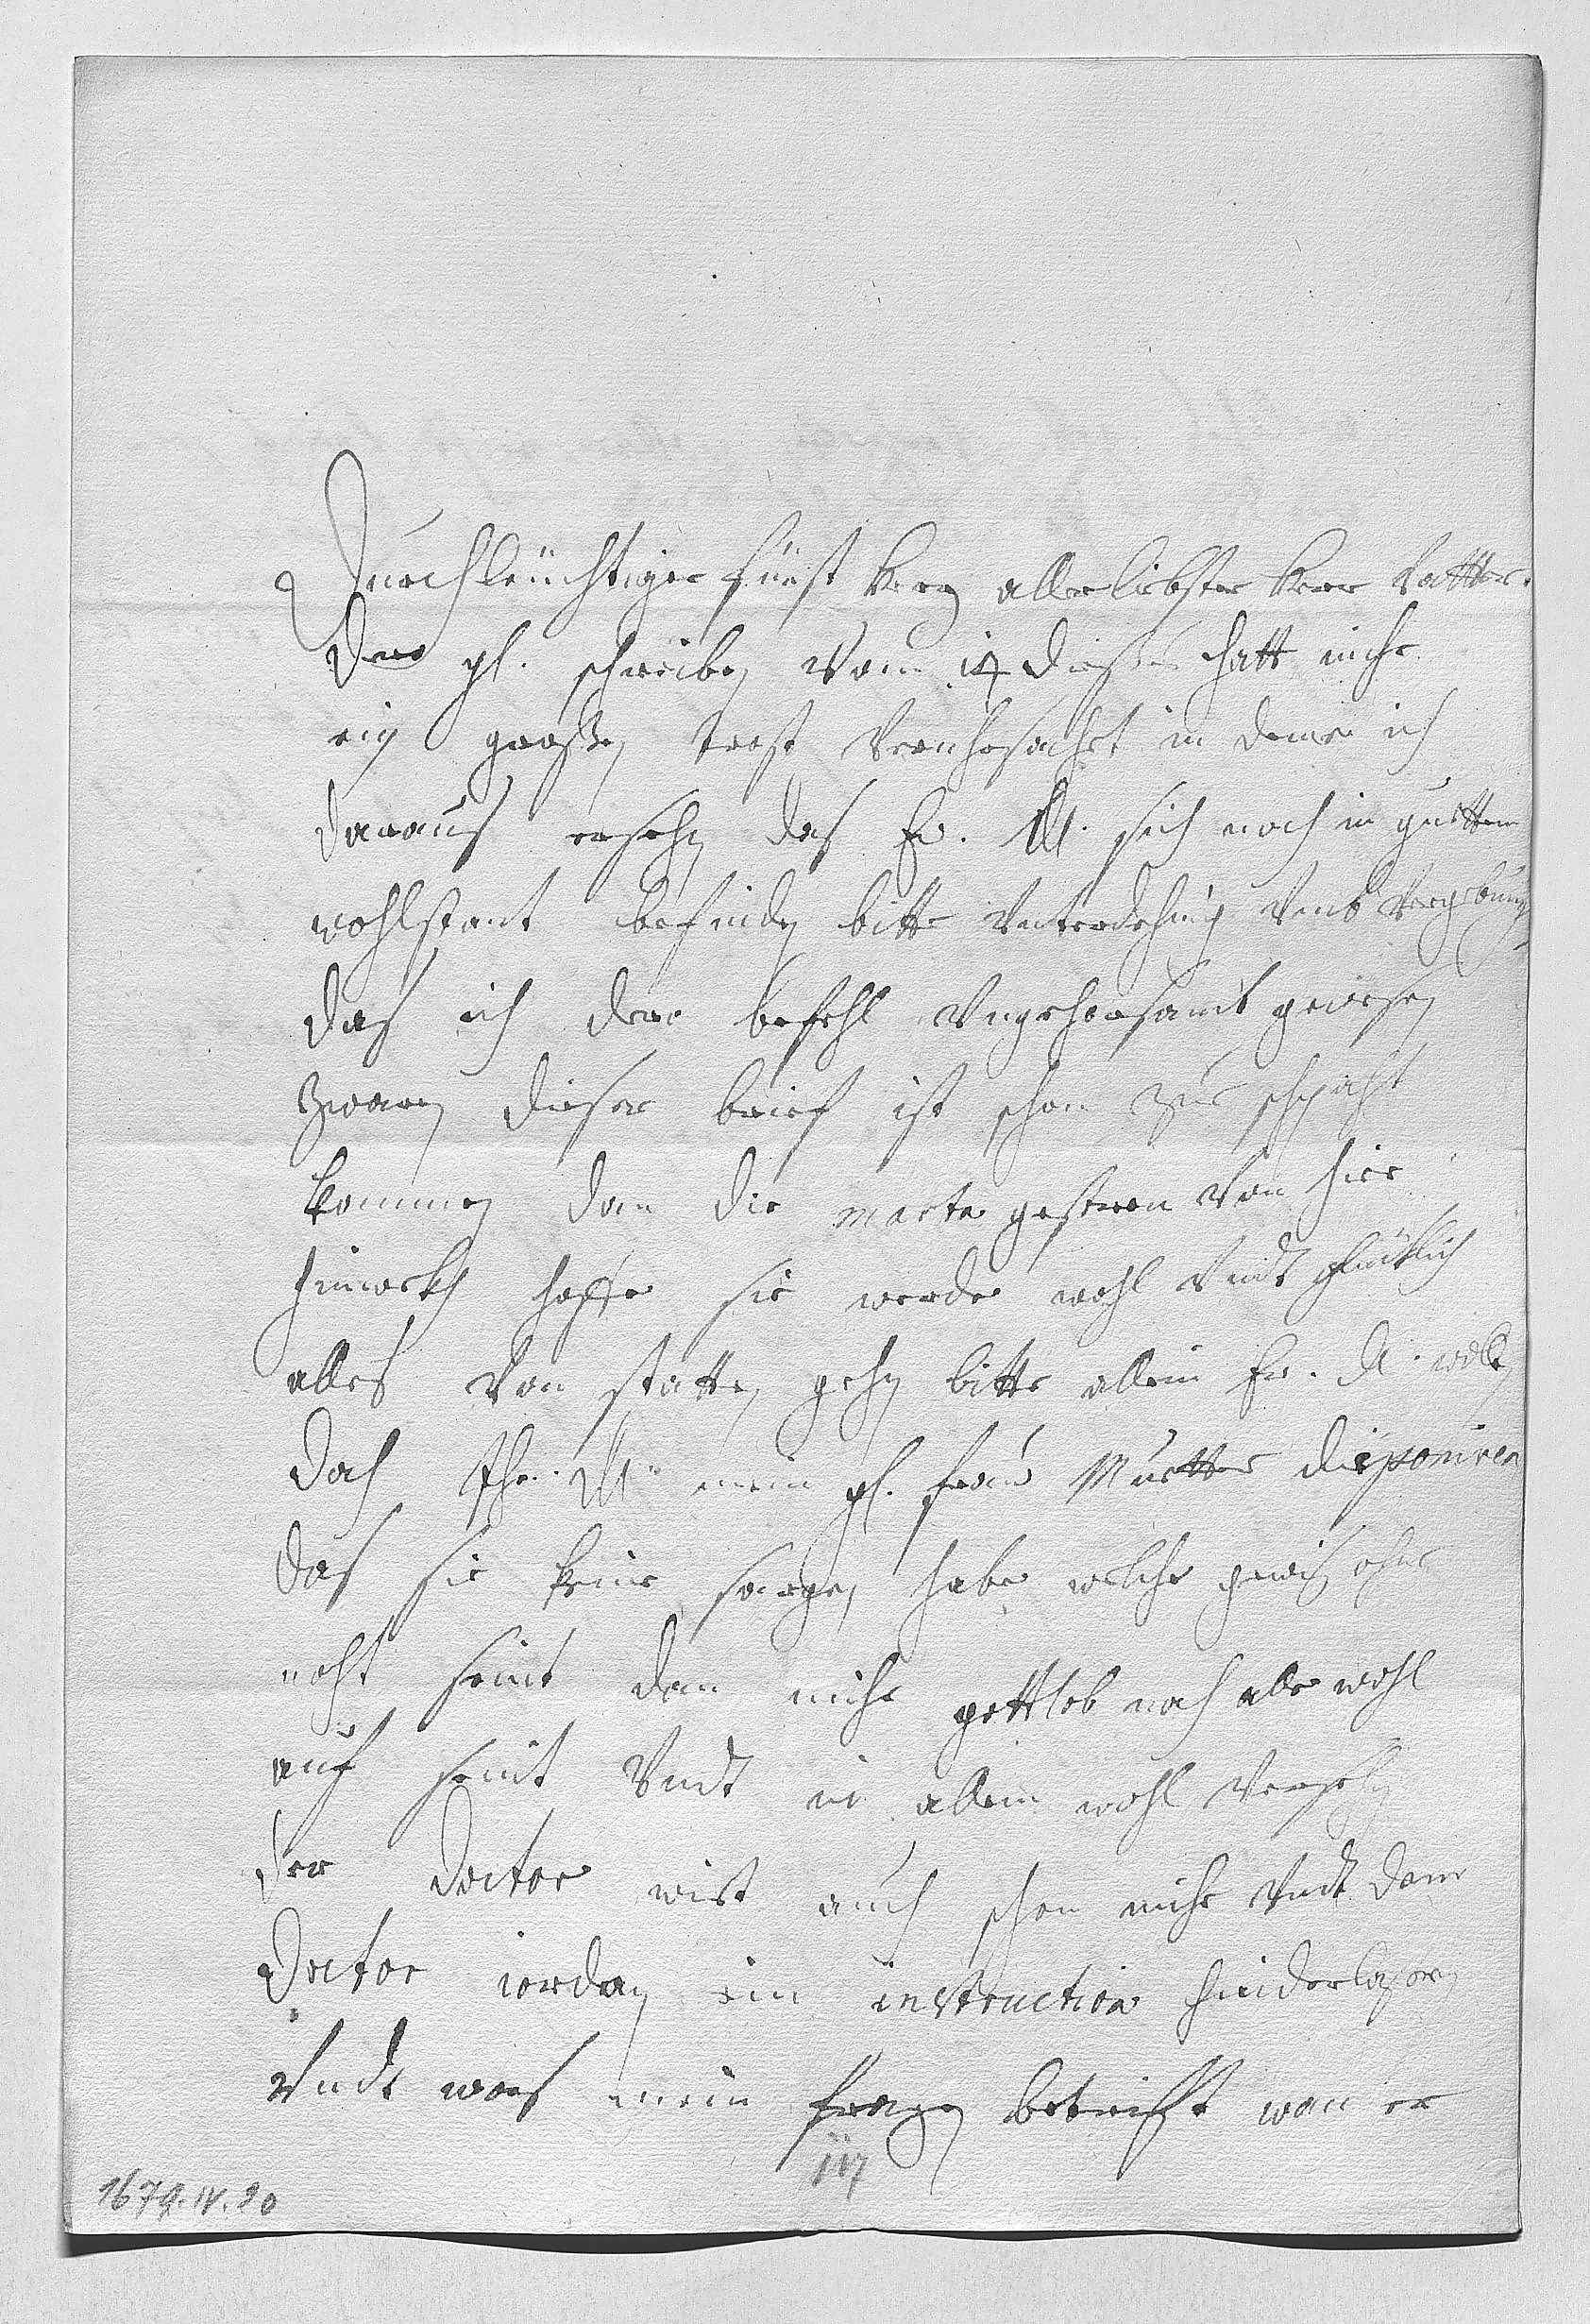 Durchleüchtiger Fürst herz allerliebster herr vatter.
Dero gl. schreiben vom 14 dießes hatt mihr
ein großen trost veruhrsachet in deme ich
daraus ersehen das Ew. Dl. sich noch in guttem
wohlstant befinden bitte unterdehnig umb vergebung
das ich dero befehl ungehorsamb gewesen
zwaren dieser brief ist schon zue spaht
kommen dan die marta gestern von hier
hinwekh hoffe sie werde wohl undt glücklich
alles von statten gehen bitte allein Ew. Dl. wollen
doch Ihr Dl. mein gl. frau Mutter disponiren
das sie keine sorgen habe welche gewis ohne
noht seint dan mihr gottlob noch alle wohl
auf seint undt in allem wohl versehen
der Doctor wirt auch schon mihr undt dem
Doctor iordan ein instruction hinderlaßen
undt was mein fragen betrifft wan er
117
1679.IV.20